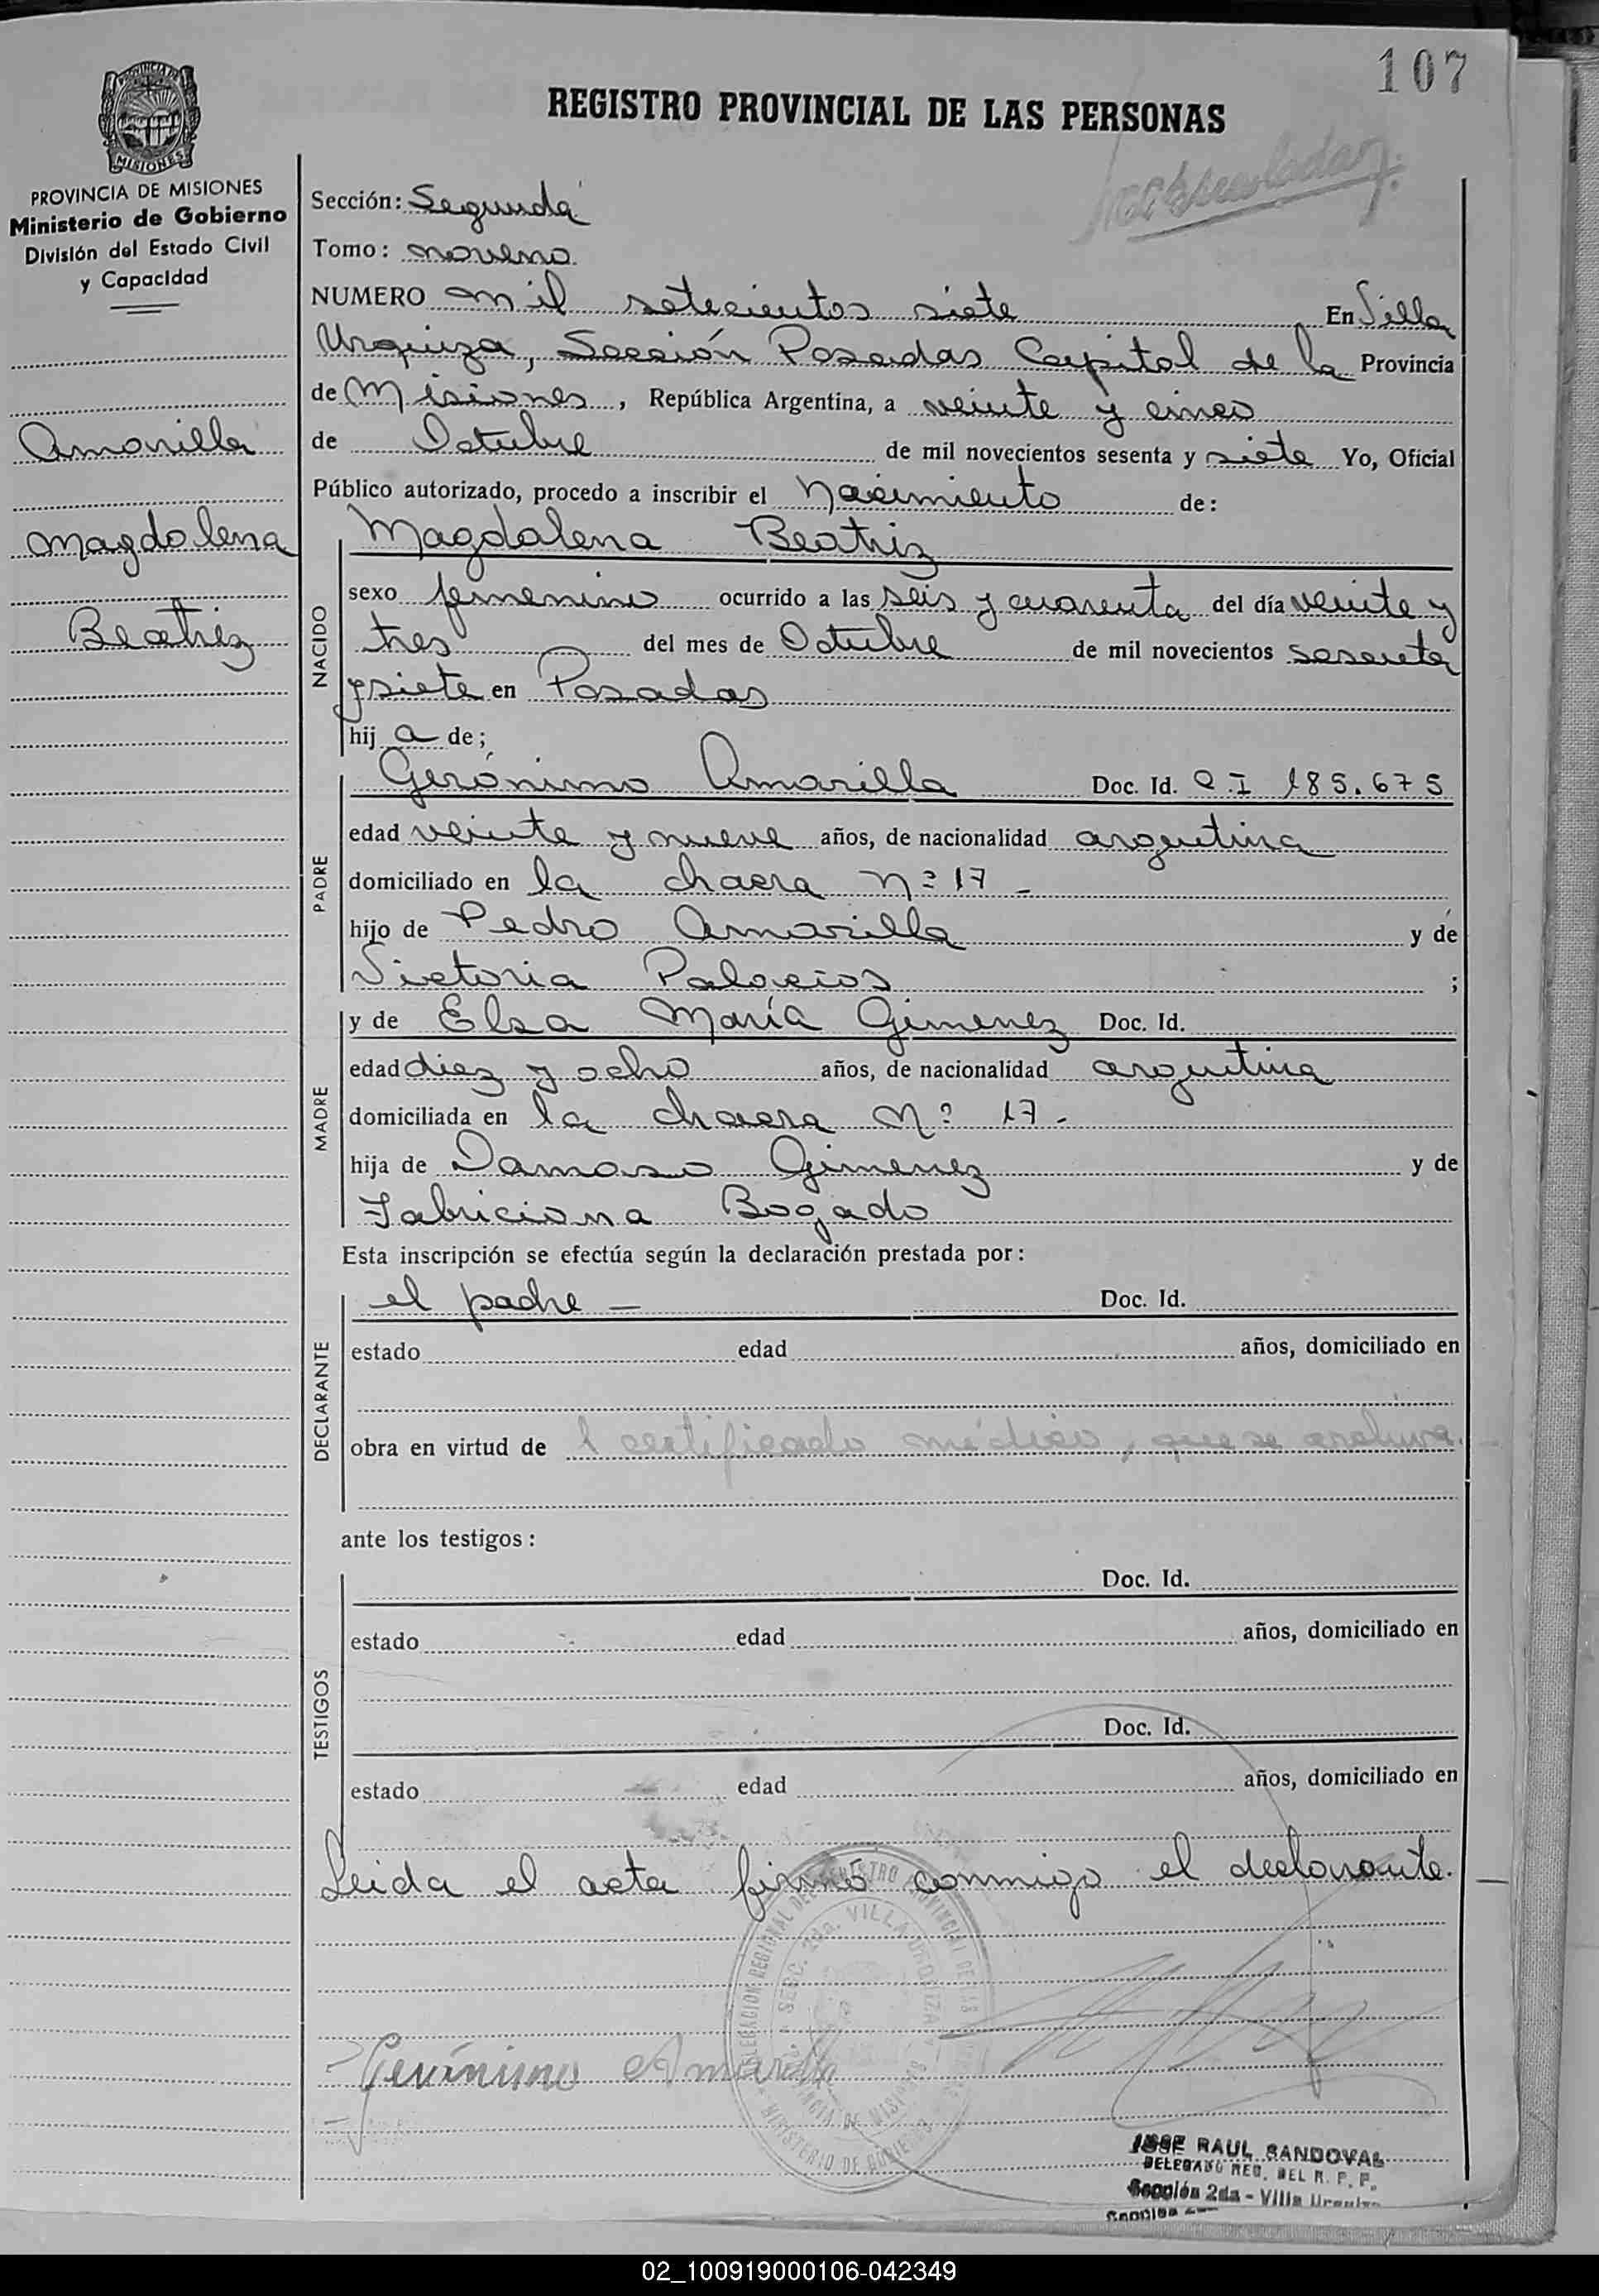 107
REGISTRO PROVINCIAL DE LAS PERSONAS
PROVINCIA DE MISIONES
MISIONES
PROVINCIA DE MISIONES
Ministerio de Gobierno
División del Estado Civil
y Capacidad
Amarilla
Magdalena
Beatriz
Sección: Segunda
Tomo: noveno
NUMERO mil setecientos siete En Villa
Urquiza, Sección Posadas Capital de la Provincia
de Misiones, República Argentina, a veinte y cinco
de Octubre de mil novecientos sesenta y siete Yo, Oficial
Público autorizado, procedo a inscribir el Nacimiento de:
Magdalena Beatriz
NACIDO
sexo femenino ocurrido a las seis y cuarenta del día veinte y
tres del mes de Octubre de mil novecientos sesenta
y siete en Posadas
hij a de;
PADRE
Gerónimo Amarilla Doc. Id. C.I 185.675
edad veinte y nueve años, de nacionalidad argentina
domiciliado en la chacra Nº 17 -
hijo de Pedro Amarilla y de
Victoria Palacios ;
MADRE
y de Elsa María Gimenez Doc. Id.
edad diez y ocho años, de nacionalidad argentina
domiciliada en la chacra Nº 17 -
hija de Damaso Gimenez y de
Fabriciana Bogado
Esta inscripción se efectúa según la declaración prestada por:
DECLARANTE
el padre - Doc. Id.
estado edad años, domiciliado en
obra en virtud de l certificado médico, que se archiva.
ante los testigos:
TESTIGOS
Doc. Id.
estado edad años, domiciliado en
Doc. Id.
estado edad años, domiciliado en
Leida el acta firmó conmigo el declarante.
DELEGACION REGIONAL DEL REGISTRO PROVINCIAL DE LAS
SECC. 2da. VILLA URQUIZA
PROVINCIA DE MISIONES
MINISTERIO DE GOBIERNO
Gerónimo Amarilla
JOSE RAUL SANDOVAL
DELEGADO REG. DEL R. P. P.
Sección 2da - Villa Urquiza
Sección
02_100919000106-042349